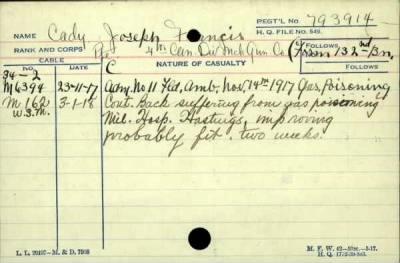 NAME Cady, Joseph Francis REG'T'L NO. 793914
H. Q. FILE NO. 649.
RANK AND CORPS Pte. 4th Can. Div. Mch. Gun. Co (From 132nd Bn,
FOLLOWS
CABLE NATURE OF CASUALTY FOLLOWS
NO. DATE C
34-2
M6394 23-11-17 Adm. No 11 Fld. Amb. Nov. 14th 1917 Gas Poisoning
M162 3-1-18 Cont. Back suffering from gas poisoning
W.S.M. Mil. Hosp. Hastings, improving
probably fit. two weeks.
L. L. 20107—M. & D. 7988
M. F. W. 42—50m.—5-17.
H. Q. 1772-39-583.